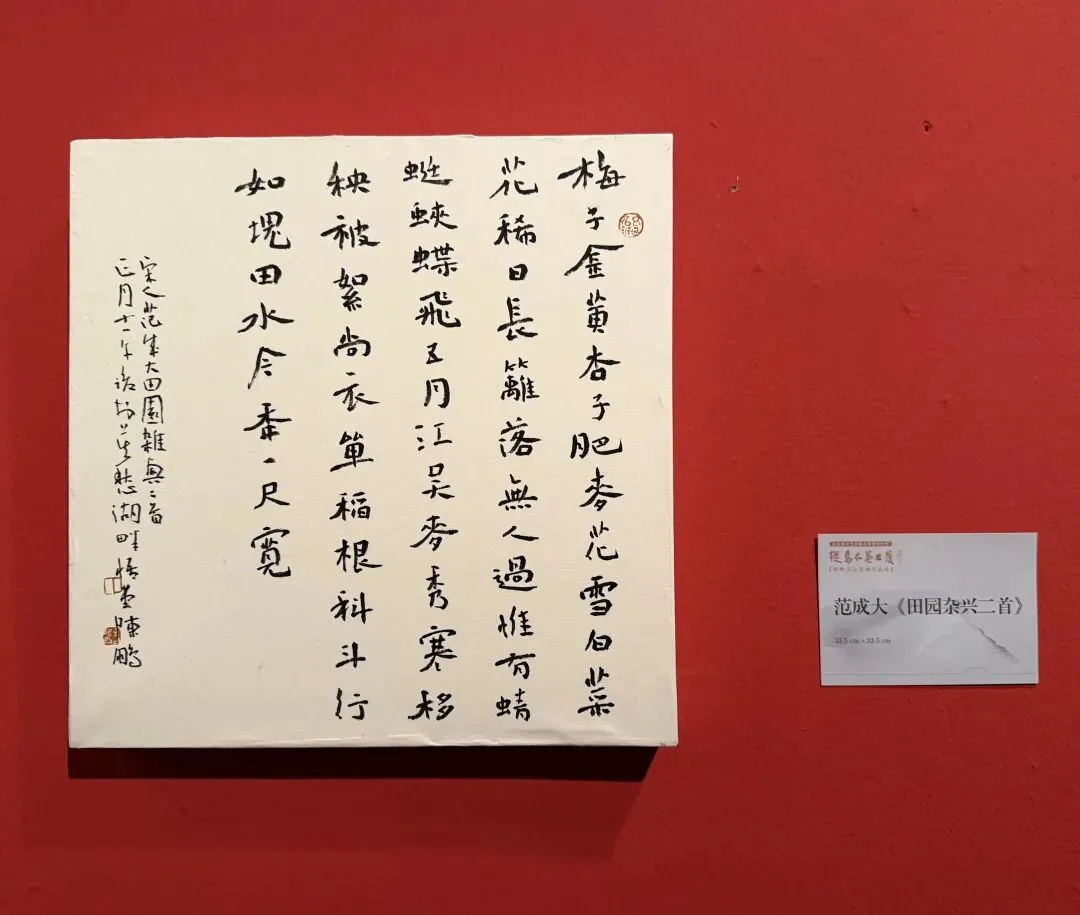 梅子金黄杏子肥麥花雪白菜
花稀日長籬落無人過惟有蜻
蜓蛺蝶飛五月江吴麥秀寒移
秧被絮尚衣單稻根科斗行
如塊田水今番一尺寬
宋人范成大田園雜興二首
正月十一午後於莫愁湖畔悟堂陳鵬
范成大《田园杂兴二首》
33.5 cm×33.5 cm